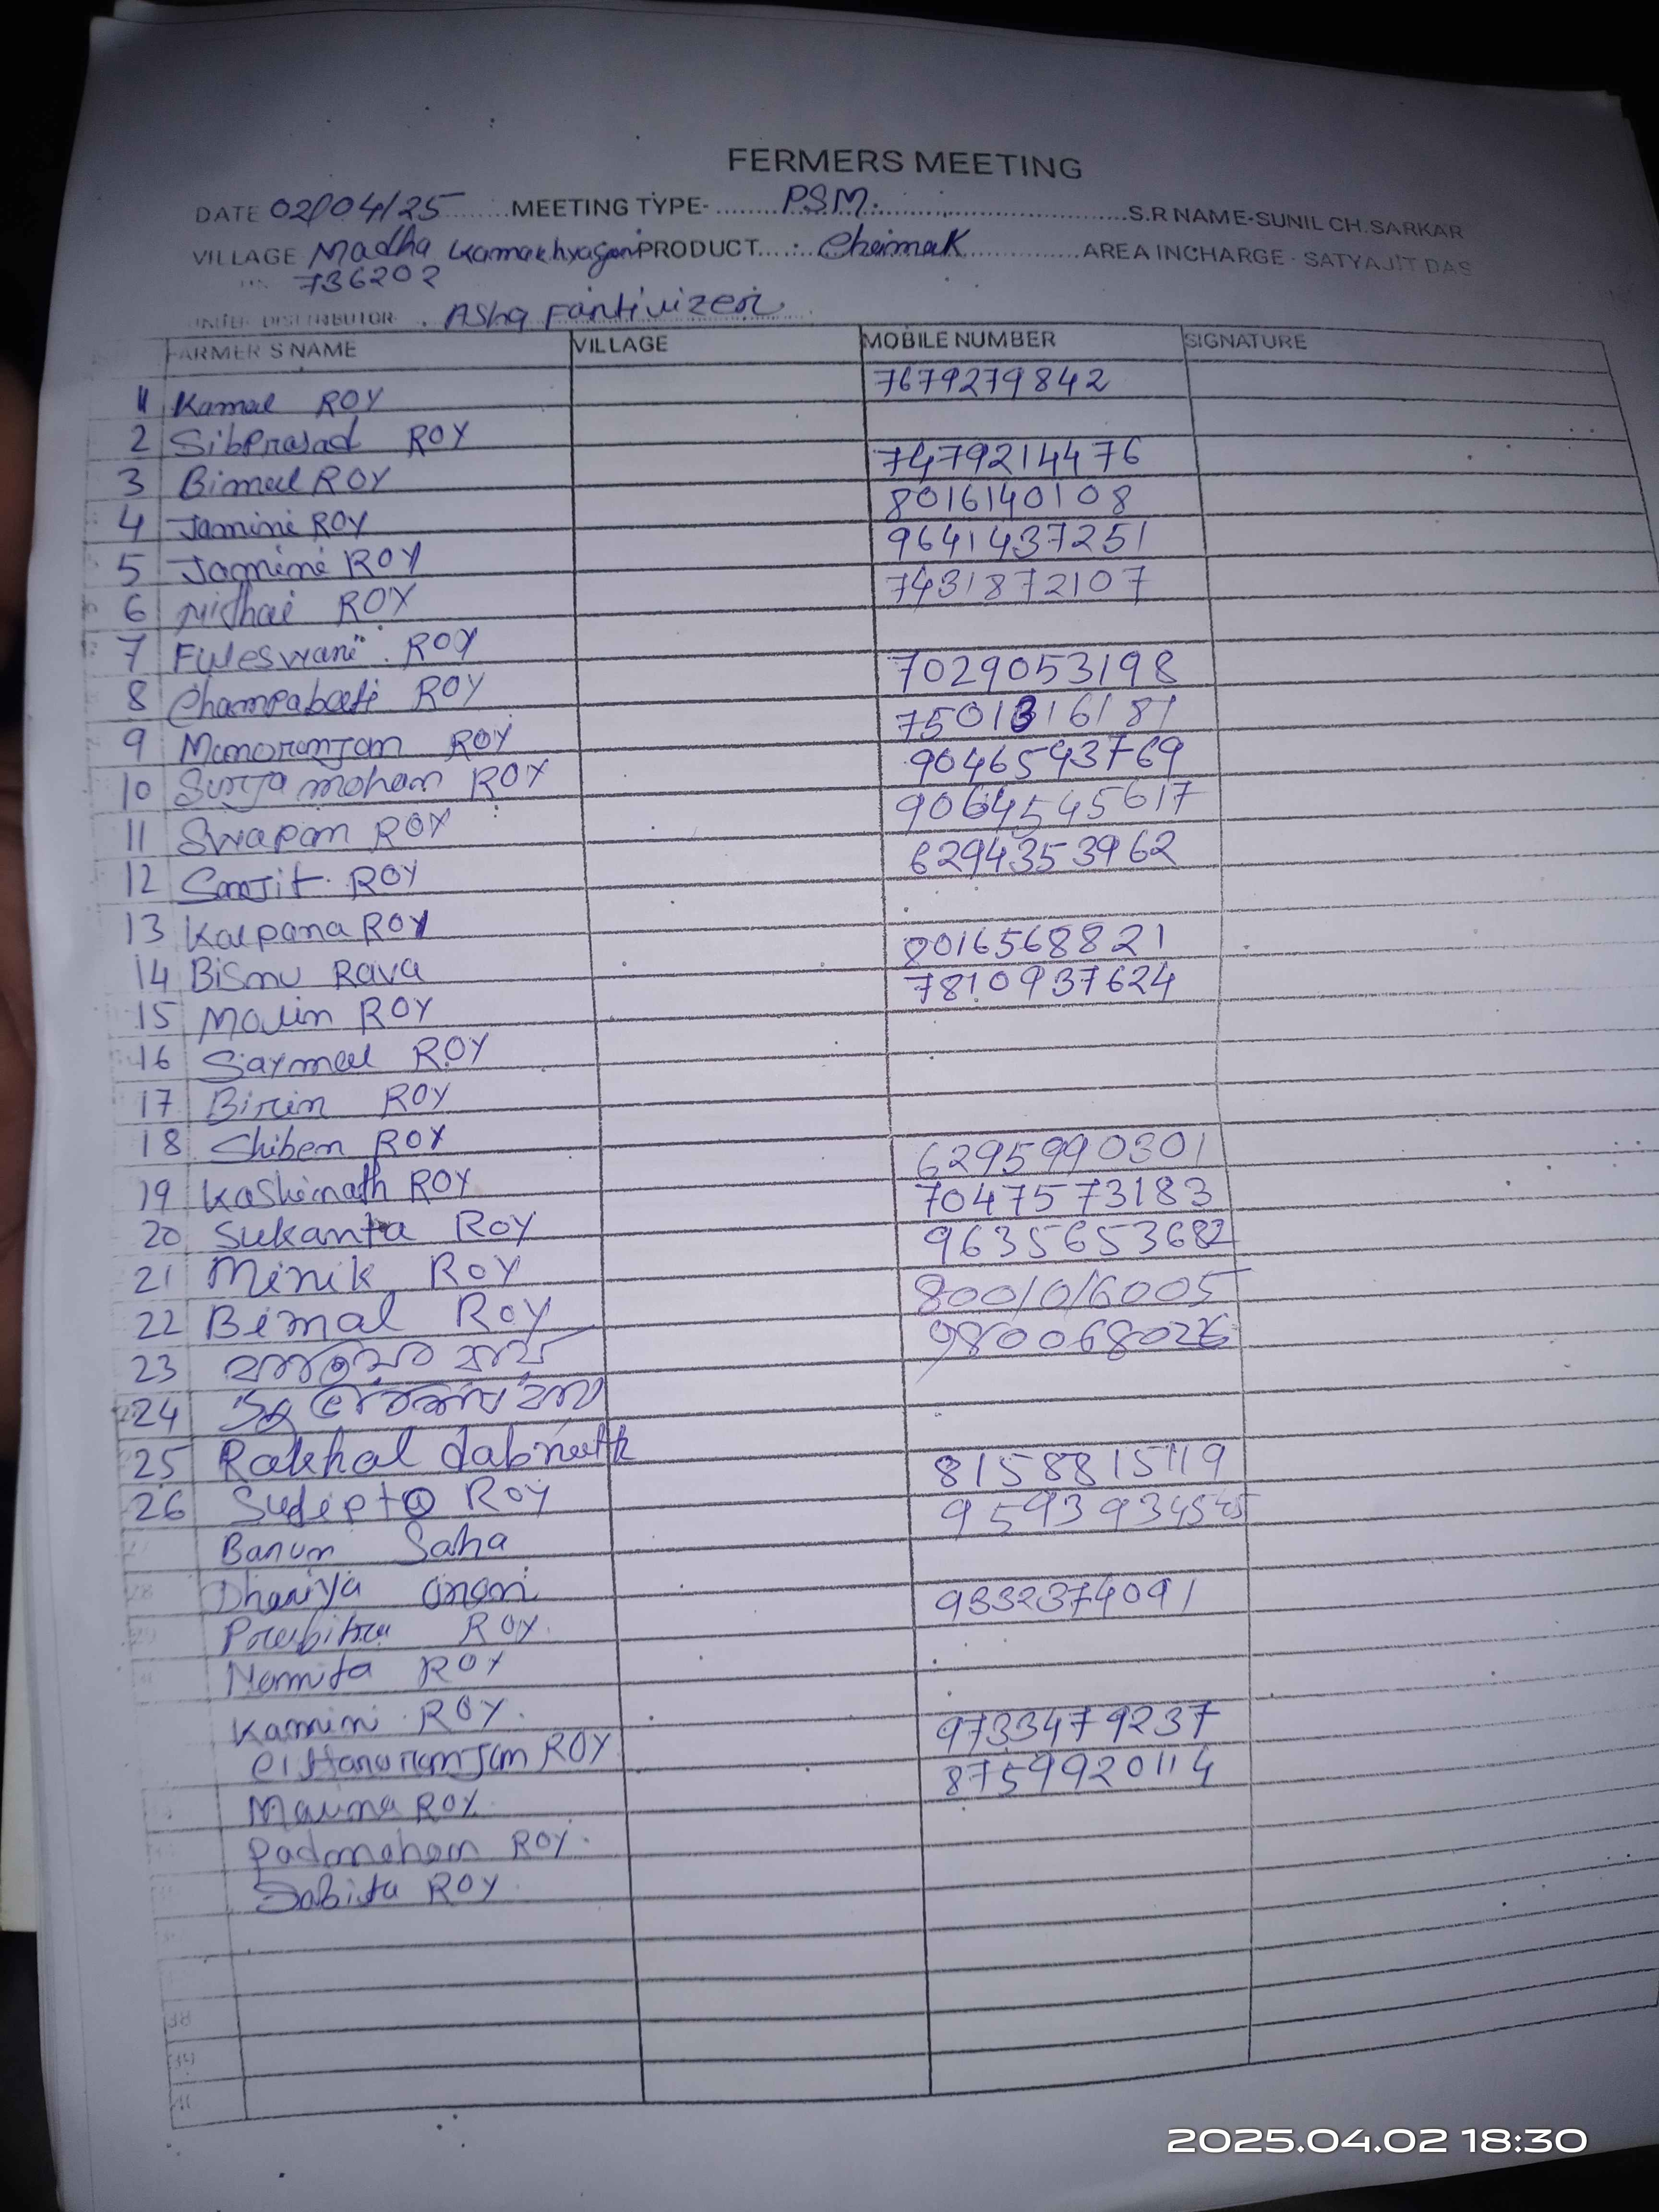 FERMERS MEETING
DATE 02/04/25 MEETING TYPE- PSM. S.R NAME-SUNIL CH.SARKAR
VILLAGE Madha Kamakhyagon PRODUCT....: Cheimak AREA INCHARGE - SATYAJIT DAS
736202
DISTRIBUTOR Ashq Fantivizer
FARMER S NAME VILLAGE MOBILE NUMBER SIGNATURE
1 Kamal ROY 7679279842
2 Sibprasad ROY
3 Bimal ROY 7479214476
4 Jamini ROY 8016140108
5 Jamini ROY 9641437251
6 Nithai ROY 7431872107
7 Fuleswari ROY
8 Champabati ROY 7029053198
9 Manoranjan ROY 7501316181
10 Surja mohan ROY 9046593769
11 Swapan ROY 9064545617
12 Sanjit ROY 6294353962
13 Kalpana ROY
14 Bismu Rava 8016568821
15 Malin ROY 7810937624
16 Saymal ROY
17 Birin ROY
18 Shiben ROY
19 Kashinath ROY 6295990301
20 Sukanta ROY 7047573183
21 Minik ROY 9635653682
22 Bimal ROY 8001016005
23 রায় 980068026
24 রায়
25 Rakhal dabnath
26 Sudipta Roy 8158815119
Barun Saha 9593934545
Dhariya
Prabitra ROY. 9332374091
Namita ROY
Kamini ROY.
ROY 9733479237
Mauna ROY. 8759920114
Padmohan ROY.
Sabita ROY.
2025.04.02 18:30